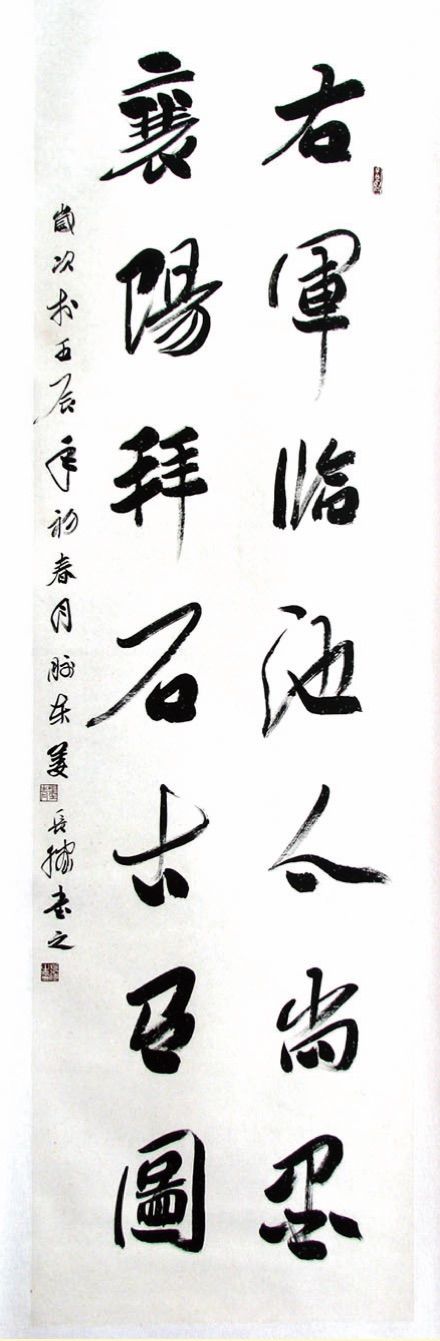 右軍臨池今尚墨
襄陽拜石古圖
歲次於壬辰年初春月膠東姜長書之